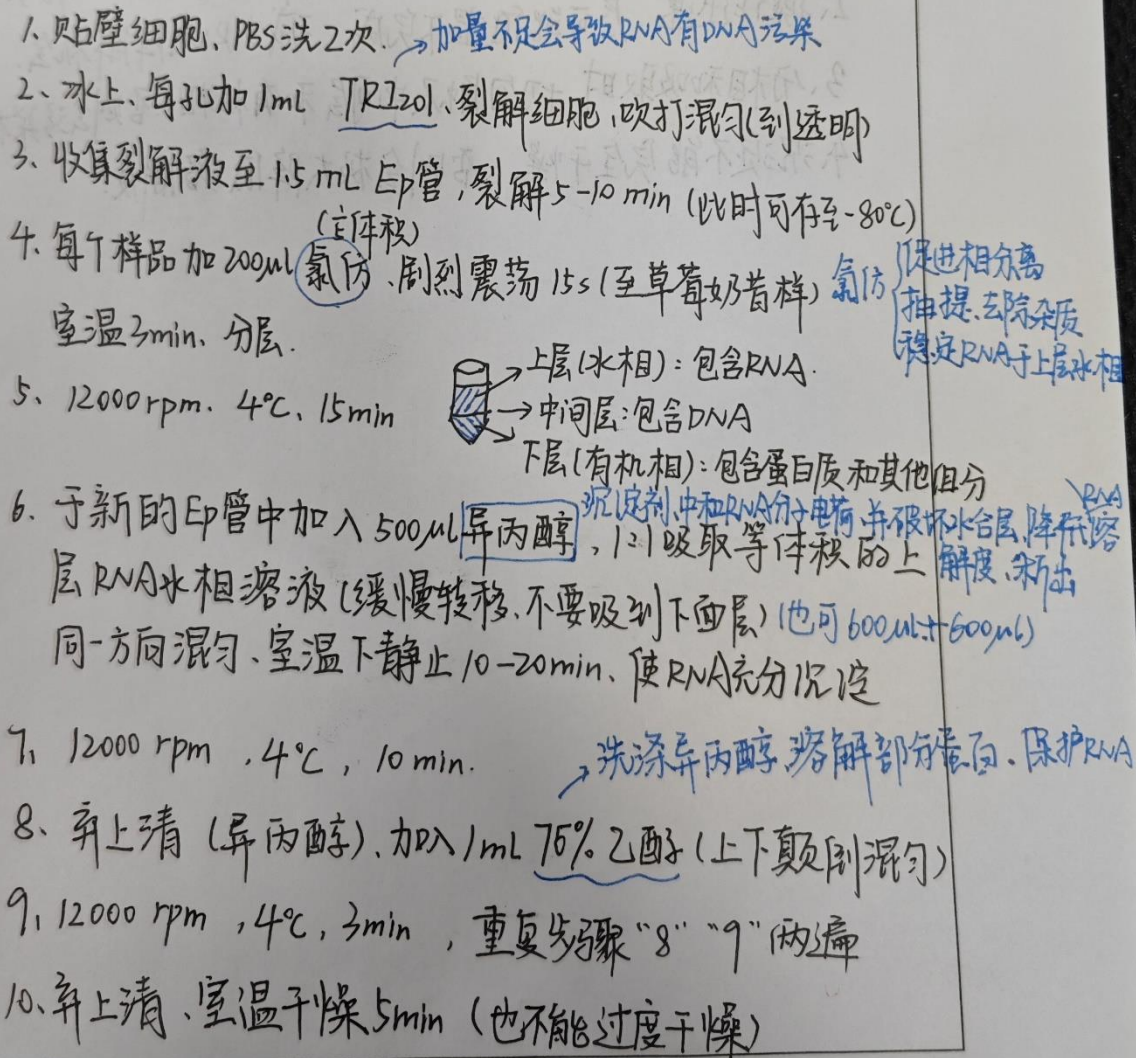 1、贴壁细胞、PBS洗2次.
→加量不足会导致RNA有DNA污染
2、冰上、每孔加1mL TRIzol、裂解细胞、吹打混匀(到透明)
3、收集裂解液至1.5mL Ep管,裂解5-10min(此时可存至-80℃)
4、每个样品加200μL氯仿、剧烈震荡15s(至草莓奶昔样)
体积)
氯仿
促进相分离
抽提、去除杂质
稳定RNA于上层水相
室温3min、分层.
5、12000rpm、4℃、15min
→上层(水相):包含RNA.
→中间层:包含DNA
下层(有机相):包含蛋白质和其他组分
6、于新的Ep管中加入500μL异丙醇,1:1吸取等体积的上
沉淀剂,中和RNA分子电荷,并破坏水合层,降低溶
RNA
解度、析出
层RNA水相溶液(缓慢转移、不要吸到下面层)(也可600μL+600μL)
同一方向混匀、室温下静止10-20min、使RNA充分沉淀
7、12000 rpm,4℃,10min.
→洗涤异丙醇,溶解部分蛋白、保护RNA
8、弃上清(异丙醇)、加入1mL 75%乙醇(上下颠倒混匀)
9、12000 rpm,4℃,3min,重复步骤“8”“9”两遍
10、弃上清、室温干燥5min(也不能过度干燥)